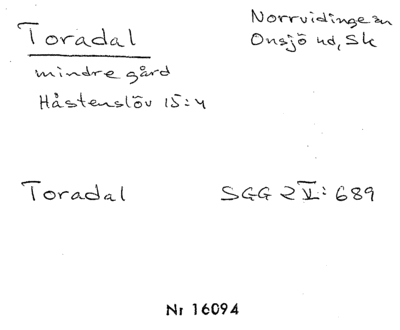 Toradal
mindre gård
Håstenslöv 15:4
Norrvidinge sn
Onsjö hd, Sk
Toradal SGG 2 V: 689
Nr 16094